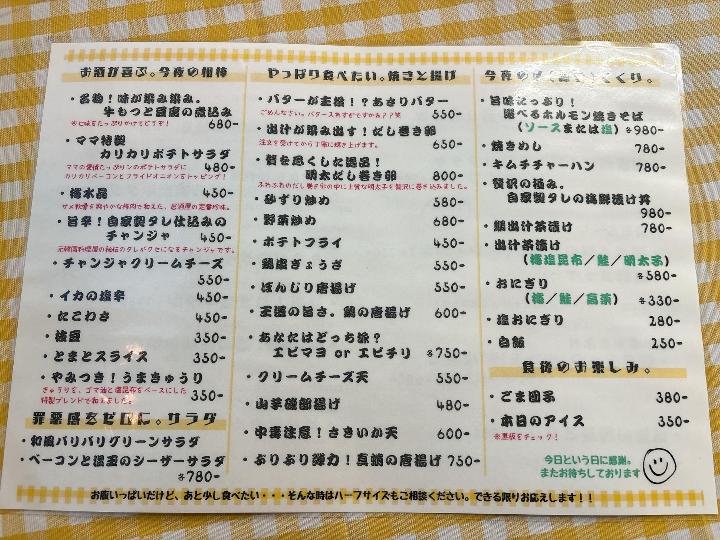 お酒が喜ぶ。今夜の相棒
・名物！味が染み染み。
牛もつと豆腐の煮込み
※七味をたっぷりかけてどうぞ！
680-
・ママ特製
カリカリポテトサラダ
480-
ママの愛情たっぷりンのポテトサラダに
カリカリベーコンとフライドオニオンをトッピング！
・梅水晶 450-
サメ軟骨を爽やかな梅肉で和えた、居酒屋の定番珍味。
・旨辛！自家製タレ仕込みの
チャンジャ 450-
元韓国料理屋の秘伝のタレがクセになるチャンジャです。
・チャンジャクリームチーズ
550-
・イカの塩辛 450-
・たこわさ 450-
・枝豆 350-
・とまとスライス 350-
・やみつき！うまきゅうり
350-
きゅうりを、ゴマ油と塩昆布をベースにした
特製ブレンドで和えました。
罪悪感をゼロに。サラダ
・和風パリパリグリーンサラダ
・ベーコンと温玉のシーザーサラダ
各780-
やっぱり食べたい。焼きと揚げ
・バターが主役！？あさりバター
ごめんなさい。バター入れすぎですかぁ？？笑
550-
・出汁が染み出す！だし巻き卵
注文を受けてから丁寧に焼き上げます。
650-
・贅を尽くした逸品！
明太だし巻き卵 800-
ふわふわのだし巻き卵の中に上質な明太子を贅沢に巻き込みました。
・砂ずり炒め 580-
・野菜炒め 680-
・ポテトフライ 450-
・鶏塩ぎょうざ 550-
・ぼんじり唐揚げ 550-
・王道の旨さ。鶏の唐揚げ 600-
・あなたはどっち派？
エビマヨ or エビチリ 各750-
・クリームチーズ天 550-
・山芋磯部揚げ 480-
・中毒注意！さきいか天 600-
・ぷりぷり弾力！真蛸の唐揚げ 750-
・旨味たっぷり！
選べるホルモン焼きそば
（ソースまたは塩）各980-
・焼きめし 780-
・キムチチャーハン 780-
・贅沢の極み。
自家製タレの海鮮漬け丼
980-
・鯛出汁茶漬け 780-
・出汁茶漬け
（梅塩昆布／鮭／明太子）
各580-
・おにぎり
（梅／鮭／高菜） 各330-
・塩おにぎり 280-
・白飯 250-
食後のお楽しみ。
・ごま団子 380-
・本日のアイス 350-
※黒板をチェック！
今日という日に感謝。
またお待ちしております
お腹いっぱいだけど、あと少し食べたい・・・そんな時はハーフサイズもご相談ください。できる限りお応えします！！